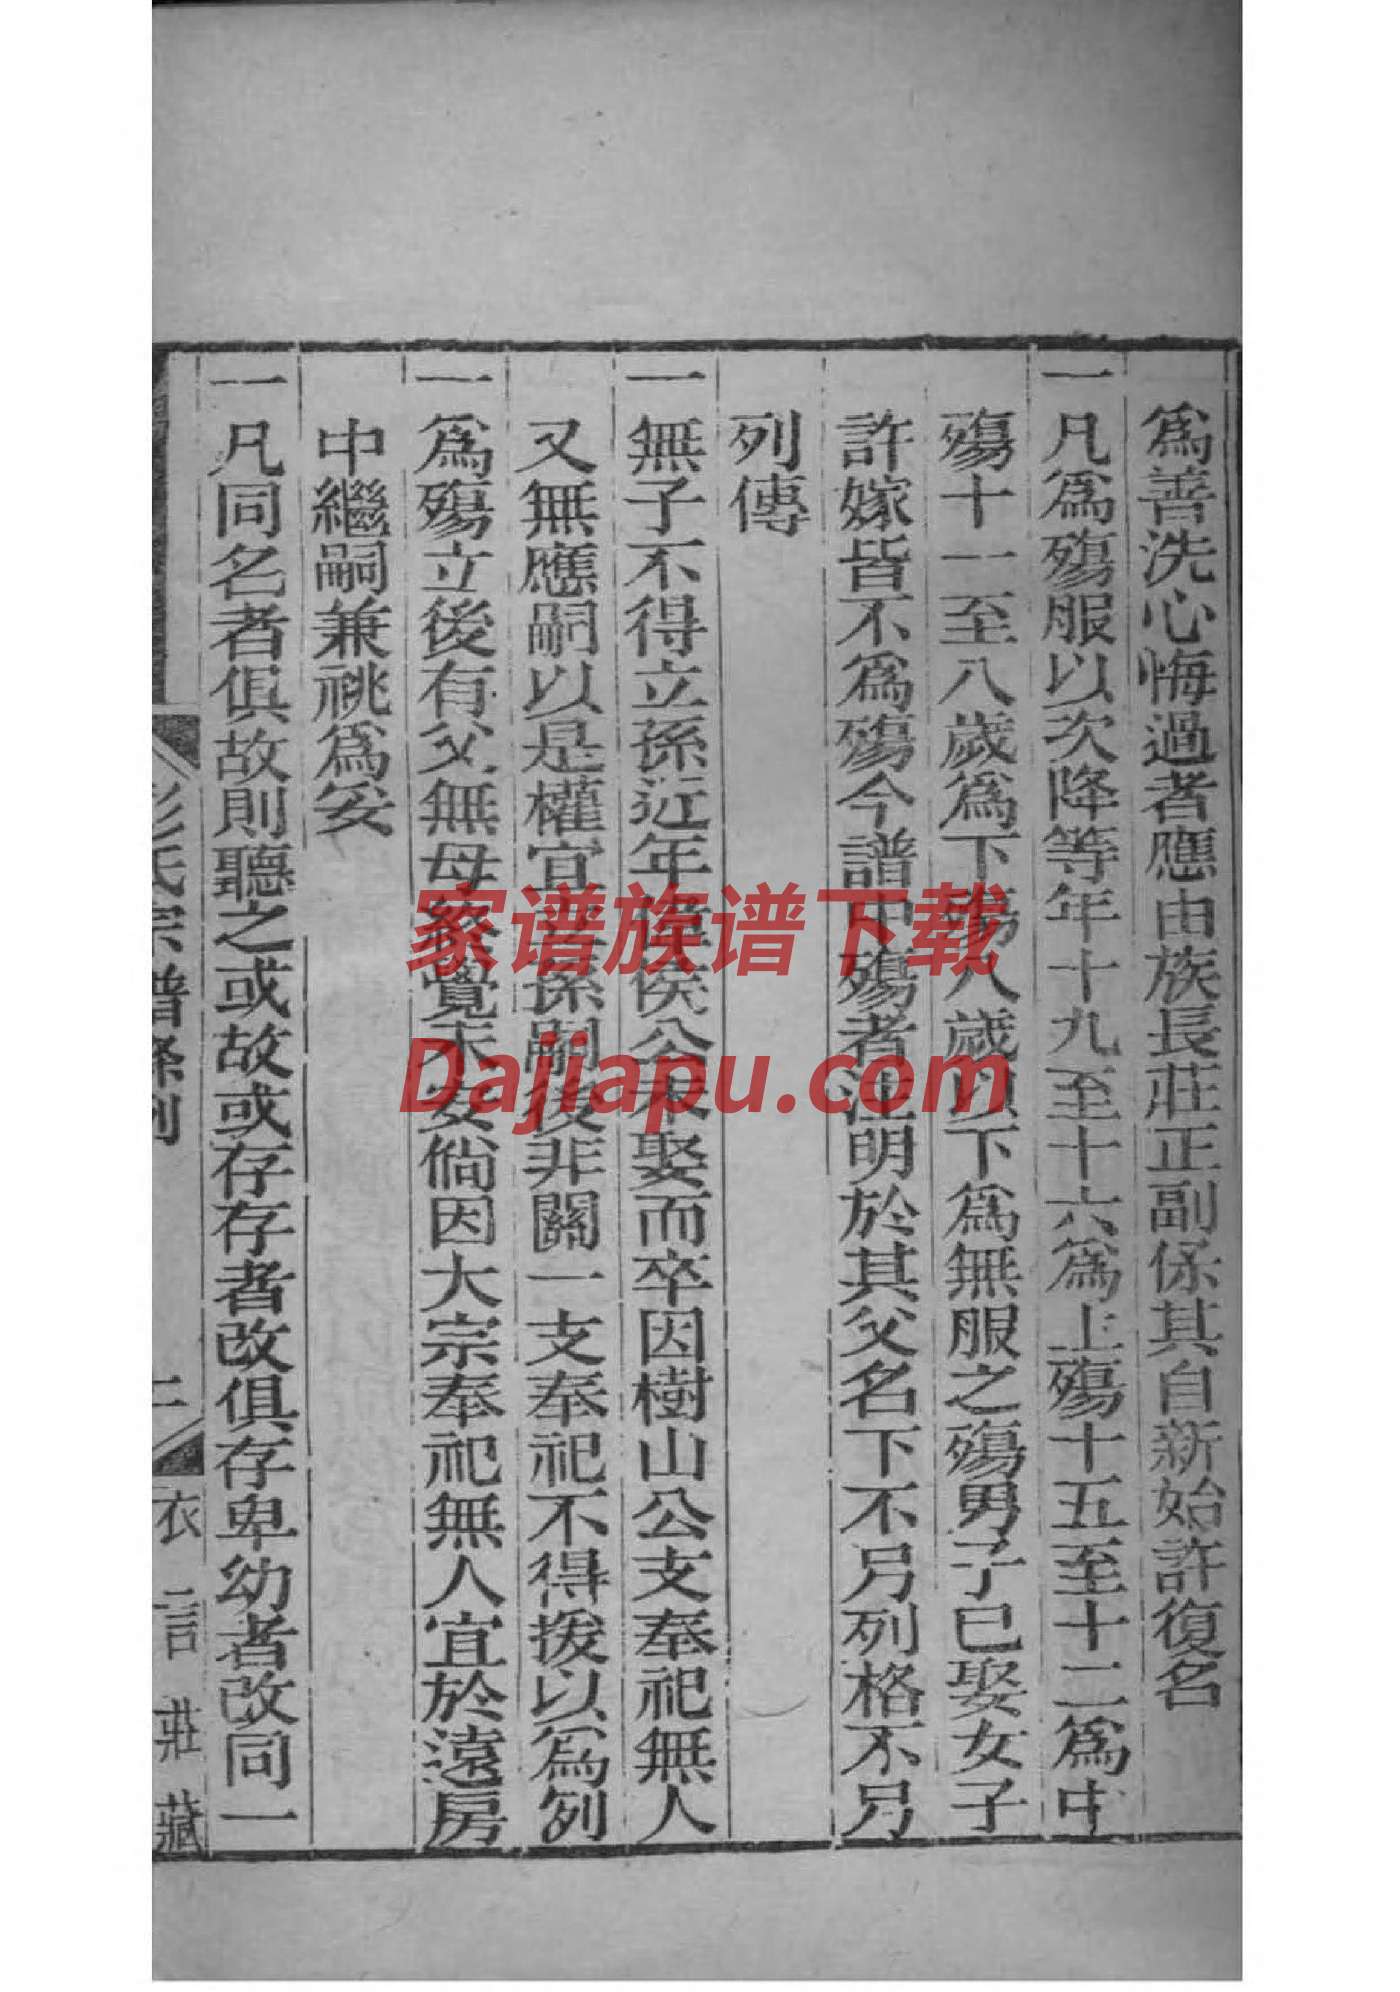 為善洗心悔過者應由族長莊正副係其自新始許復名
一凡為殤服以次降等年十九至十六為上殤十五至十二為中
殤十一至八歲為下殤八歲以下為無服之殤男子已娶女子
許嫁皆不為殤今譜中殤者注明於其父名下不另列格不另
列傳
一無子不得立孫近年偉侯公未娶而卒因樹山公支奉祀無人
又無應嗣以是權宜孫嗣後非關一支奉祀不得援以為例
一為殤立後有父無母終覺未安倘因大宗奉祀無人宜於遠房
中繼嗣兼祧為妥
一凡同名者俱故則聽之或故或存存者改俱存卑幼者改同一
彭氏宗譜條例
二
衣言莊藏
家谱族谱下载
Dajiapu.com